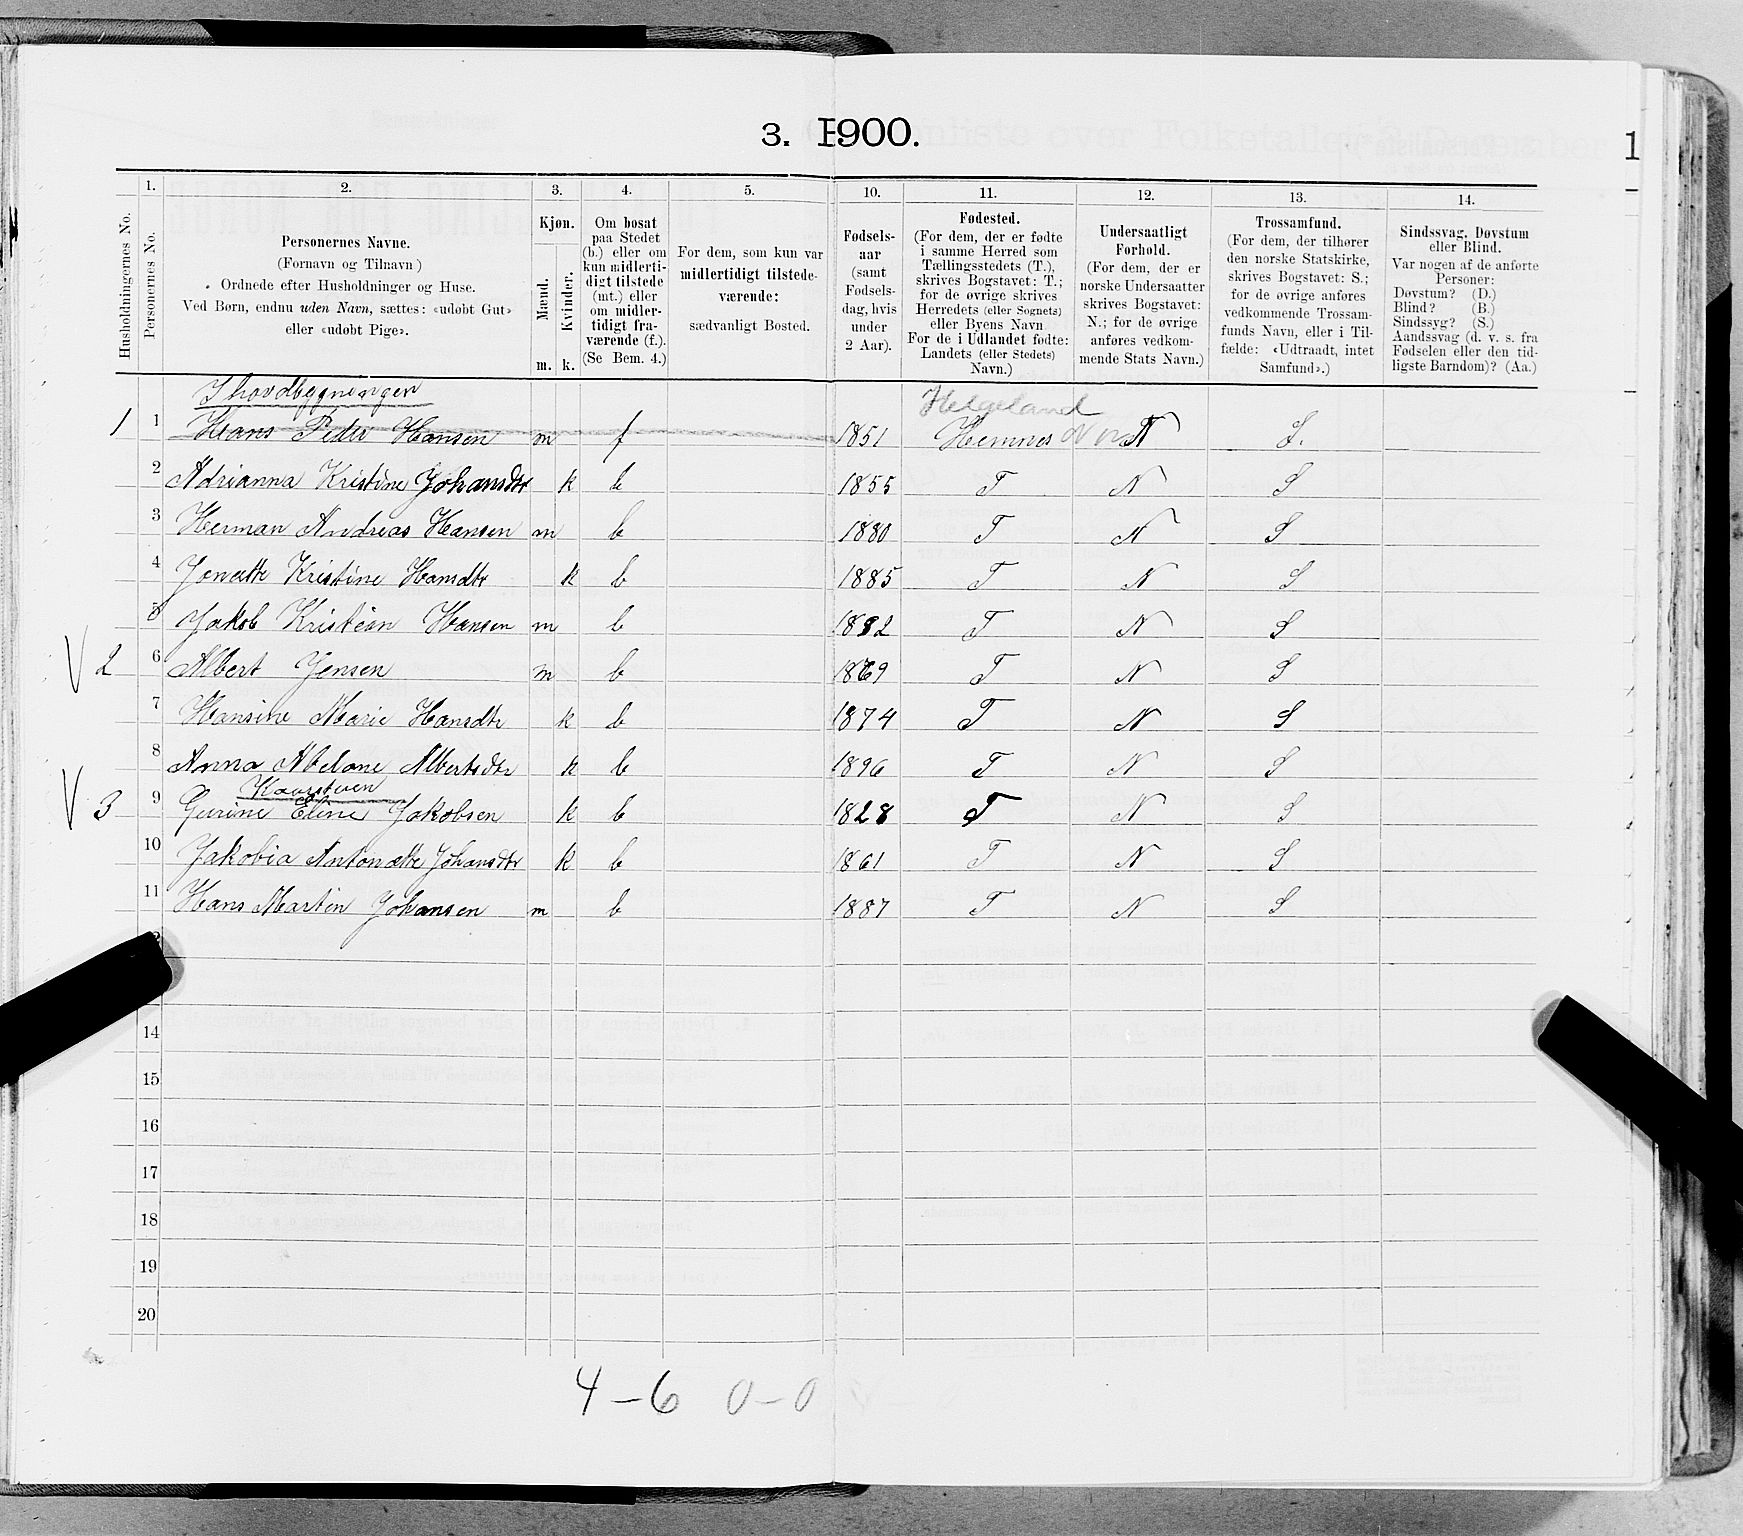 3. 1900.
1
1. 2. 3. 4. 5. 10. 11. 12. 13. 14.
Husholdningernes No.
Personernes No.
Personernes Navne.
(Fornavn og Tilnavn)
Ordnede efter Husholdninger og Huse.
Ved Børn, endnu uden Navn, sættes: «udøbt Gut»
eller «udøbt Pige».
Kjøn.
Mænd.
Kvinder.
m. k.
Om bosat
paa Stedet
(b.) eller om
kun midlerti-
digt tilstede
(mt.) eller
om midler-
tidigt fra-
værende (f.).
(Se Bem. 4.)
For dem, som kun var
midlertidigt tilstede-
værende:
sædvanligt Bosted.
Fødsels-
aar
(samt
Fødsels-
dag, hvis
under
2 Aar).
Fødested.
(For dem, der er fødte
i samme Herred som
Tællingsstedets (T.),
skrives Bogstavet: T.;
for de øvrige skrives
Herredets (eller Sognets)
eller Byens Navn
For de i Udlandet fødte:
Landets (eller Stedets)
Navn.)
Undersaatligt
Forhold.
(For dem, der er
norske Undersaatter
skrives Bogstavet:
N.; for de øvrige
anføres vedkom-
mende Stats Navn.)
Trossamfund.
(For dem, der tilhører
den norske Statskirke,
skrives Bogstavet: S.;
for de øvrige anføres
vedkommende Trossam-
funds Navn, eller i Til-
fælde: «Udtraadt, intet
Samfund».)
Sindssvag, Døvstum
eller Blind.
Var nogen af de anførte
Personer:
Døvstum? (D.)
Blind? (B.)
Sindssyg? (S.)
Aandssvag (d. v. s. fra
Fødselen eller den tid-
ligste Barndom)? (Aa.)
I hovdbygningen
Helgeland
1 1 Hans Peder Hansen m f 1851 Hemnes N S.
2 Adrianna Kristine Johansdtr k b 1855 T N S
3 Herman Andreas Hansen m b 1880 T N S
4 Jonette Kristine Hansdtr k b 1885 T N S
5 Jakob Kristian Hansen m b 1882 T N S
V 2 6 Albert Jensen m b 1869 T N S
7 Hansine Marie Hansdtr k b 1874 T N S
8 Anna Abelone Albertsdtr k b 1896 T N S
Kaarstuen
V 3 9 Gurine Eline Jakobsen k b 1828 T N S
10 Jakobia Antonette Johansdtr k b 1861 T N S
11 Hans Martin Johansen m b 1887 T N S
14
15
16
17
18
19
20
4-6 0-0